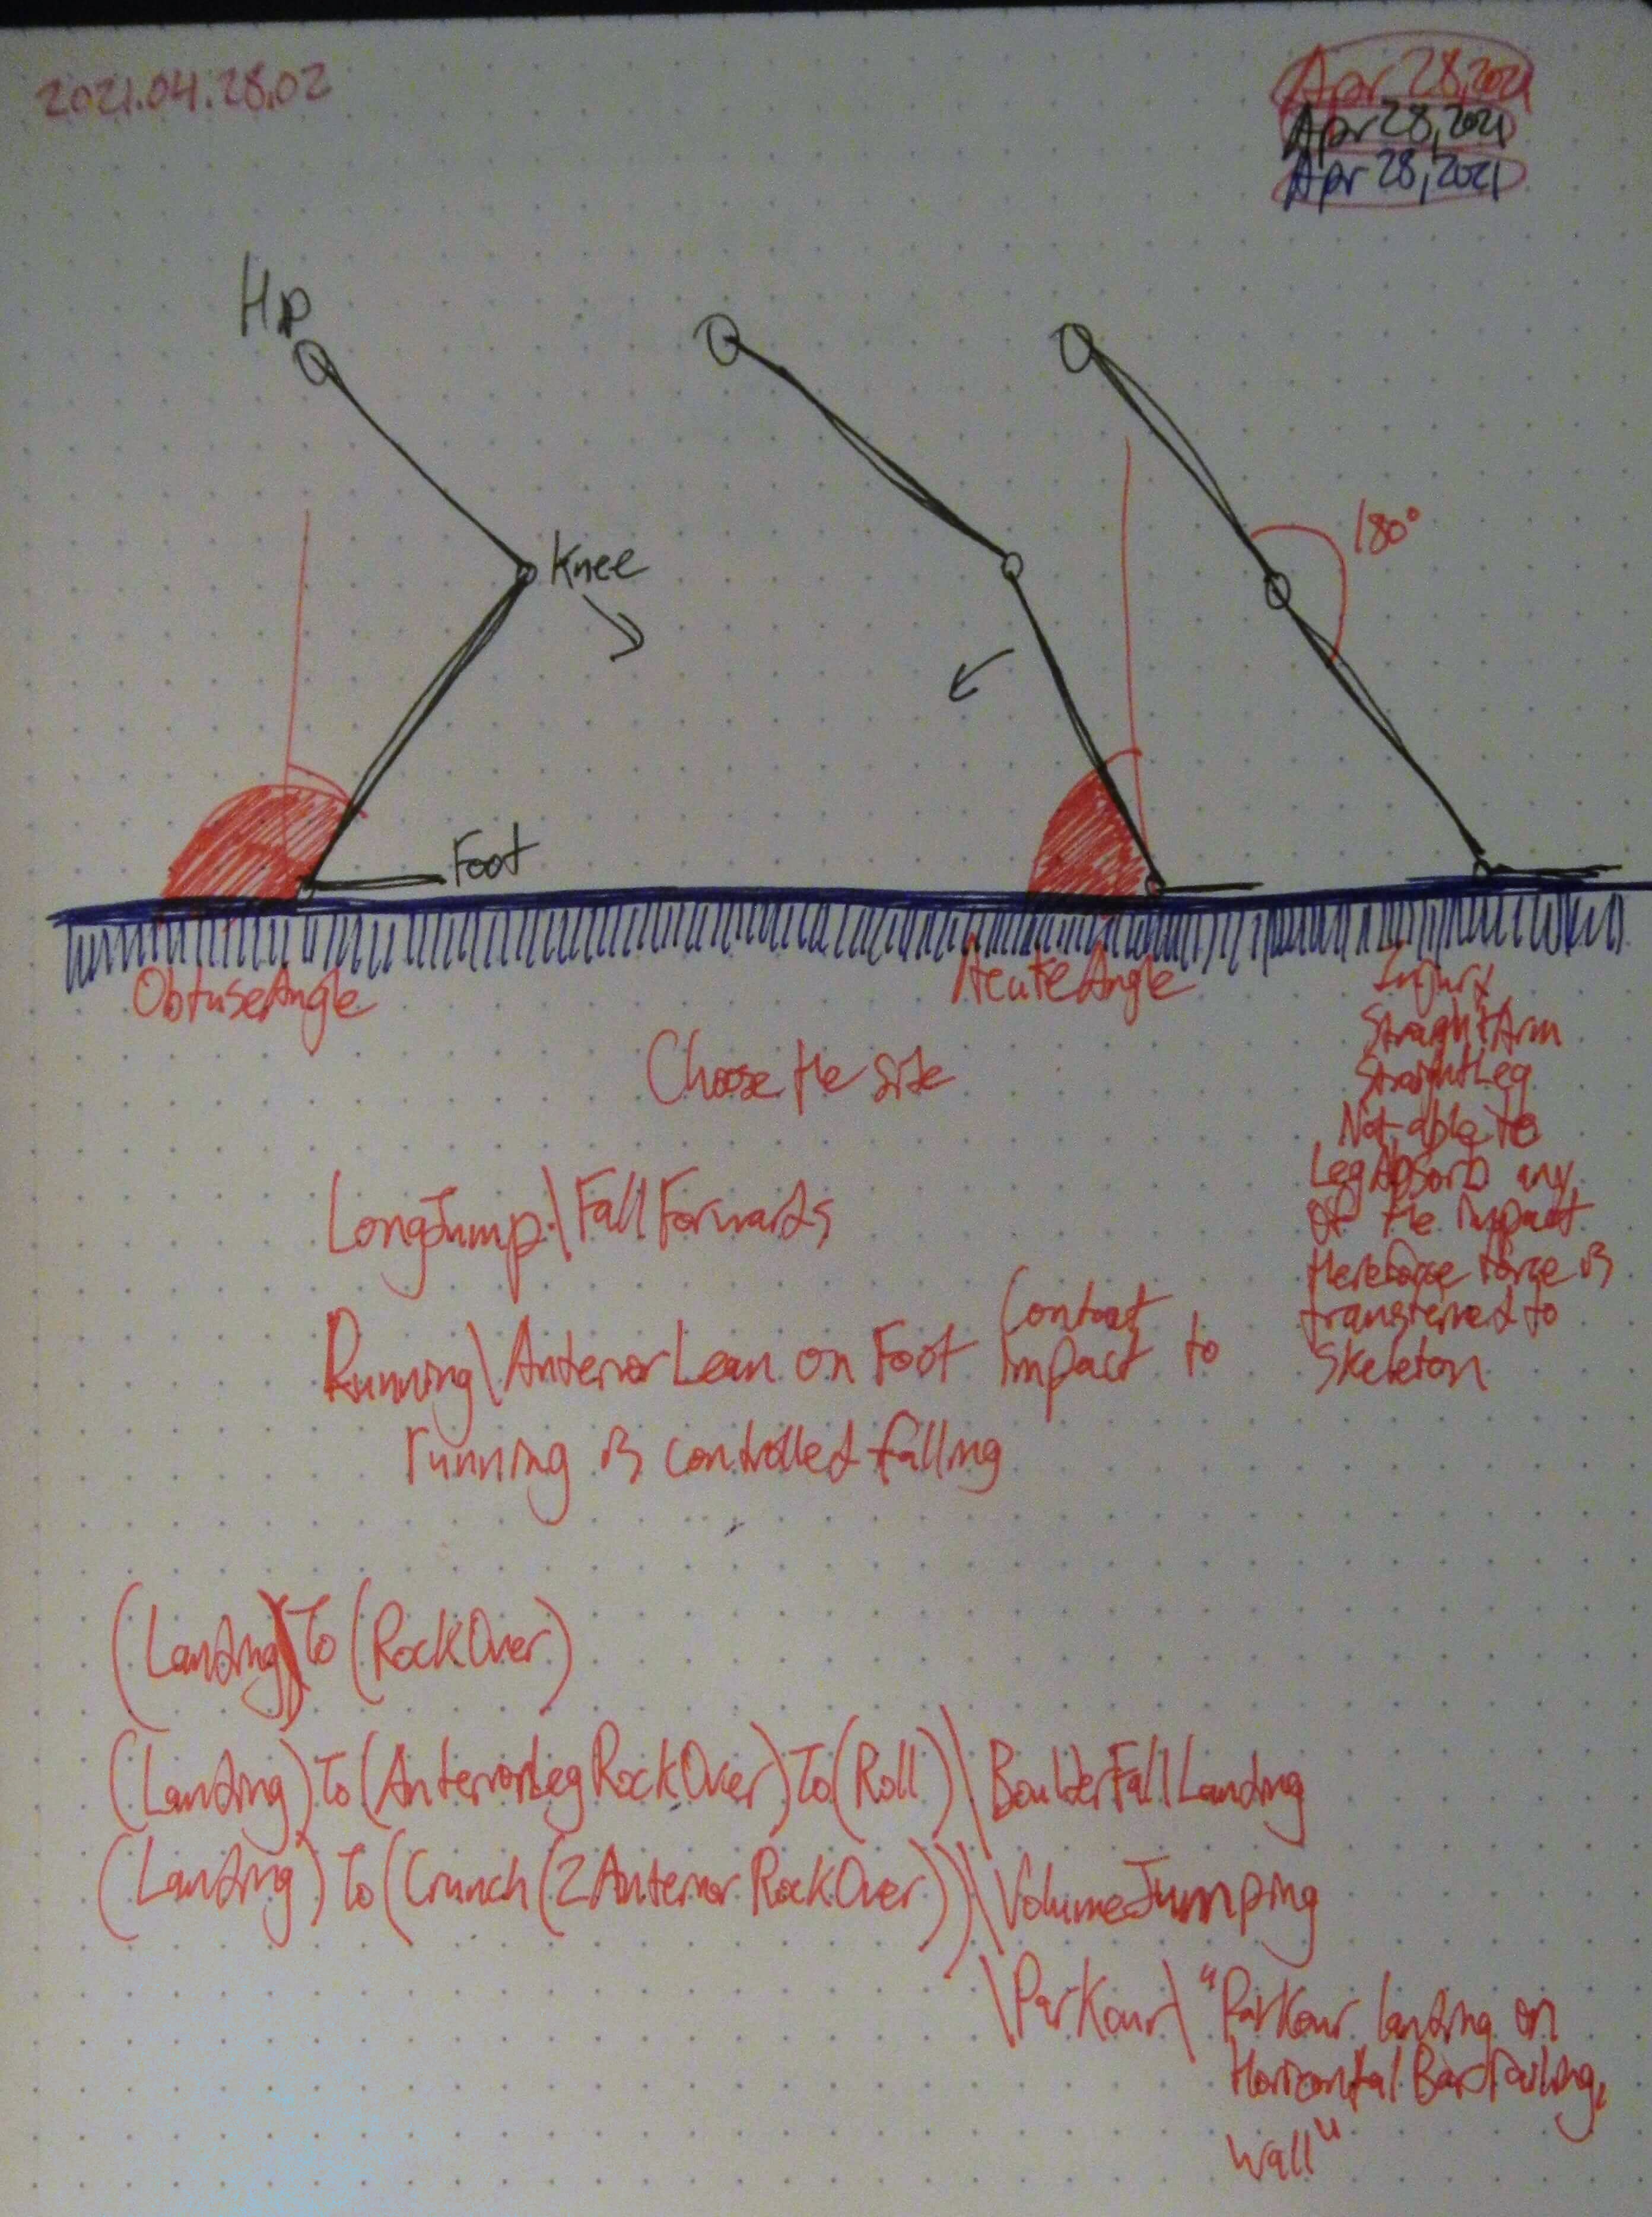 2021.04.28.02
Apr 28,2021
Apr 28,2021
Apr 28,2021
Hip
Knee
180°
Foot
ObtuseAngle
AcuteAngle
Choose the side
Injury
StraightArm
StraightLeg
Not able to
LegAbsorb any
of the impact
therefore force is
transferred to
Skeleton
LongJump\FallForwards
Running\AnteriorLean on Foot Contact Impact to
running is controlled falling
(Landing)To(RockOver)
(Landing)To(AnteriorLegRockOver)To(Roll)\BoulderFallLanding
(Landing)To(Crunch(2AnteriorRockOver))\VolumeJumping
\Parkour\"Parkour landing on
HorizontalBar,railing,
wall"